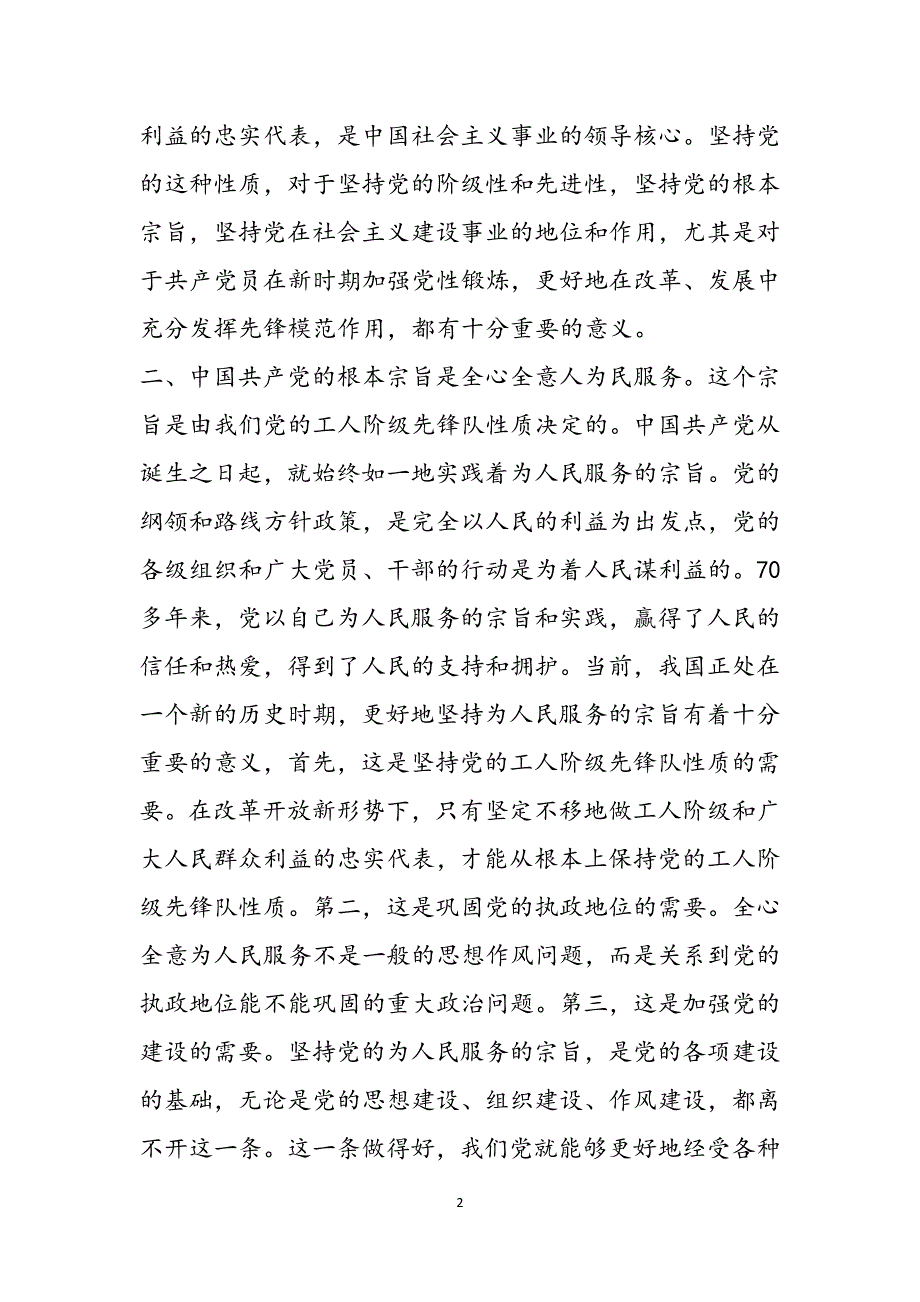 利益的忠实代表，是中国社会主义事业的领导核心。坚持党
的这种性质，对于坚持党的阶级性和先进性，坚持党的根本
宗旨，坚持党在社会主义建设事业的地位和作用，尤其是对
于共产党员在新时期加强党性锻炼，更好地在改革、发展中
充分发挥先锋模范作用，都有十分重要的意义。
二、中国共产党的根本宗旨是全心全意人为民服务。这个宗
旨是由我们党的工人阶级先锋队性质决定的。中国共产党从
诞生之日起，就始终如一地实践着为人民服务的宗旨。党的
纲领和路线方针政策，是完全以人民的利益为出发点，党的
各级组织和广大党员、干部的行动是为着人民谋利益的。70
多年来，党以自己为人民服务的宗旨和实践，赢得了人民的
信任和热爱，得到了人民的支持和拥护。当前，我国正处在
一个新的历史时期，更好地坚持为人民服务的宗旨有着十分
重要的意义，首先，这是坚持党的工人阶级先锋队性质的需
要。在改革开放新形势下，只有坚定不移地做工人阶级和广
大人民群众利益的忠实代表，才能从根本上保持党的工人阶
级先锋队性质。第二，这是巩固党的执政地位的需要。全心
全意为人民服务不是一般的思想作风问题，而是关系到党的
执政地位能不能巩固的重大政治问题。第三，这是加强党的
建设的需要。坚持党的为人民服务的宗旨，是党的各项建设
的基础，无论是党的思想建设、组织建设、作风建设，都离
不开这一条。这一条做得好，我们党就能够更好地经受各种
2